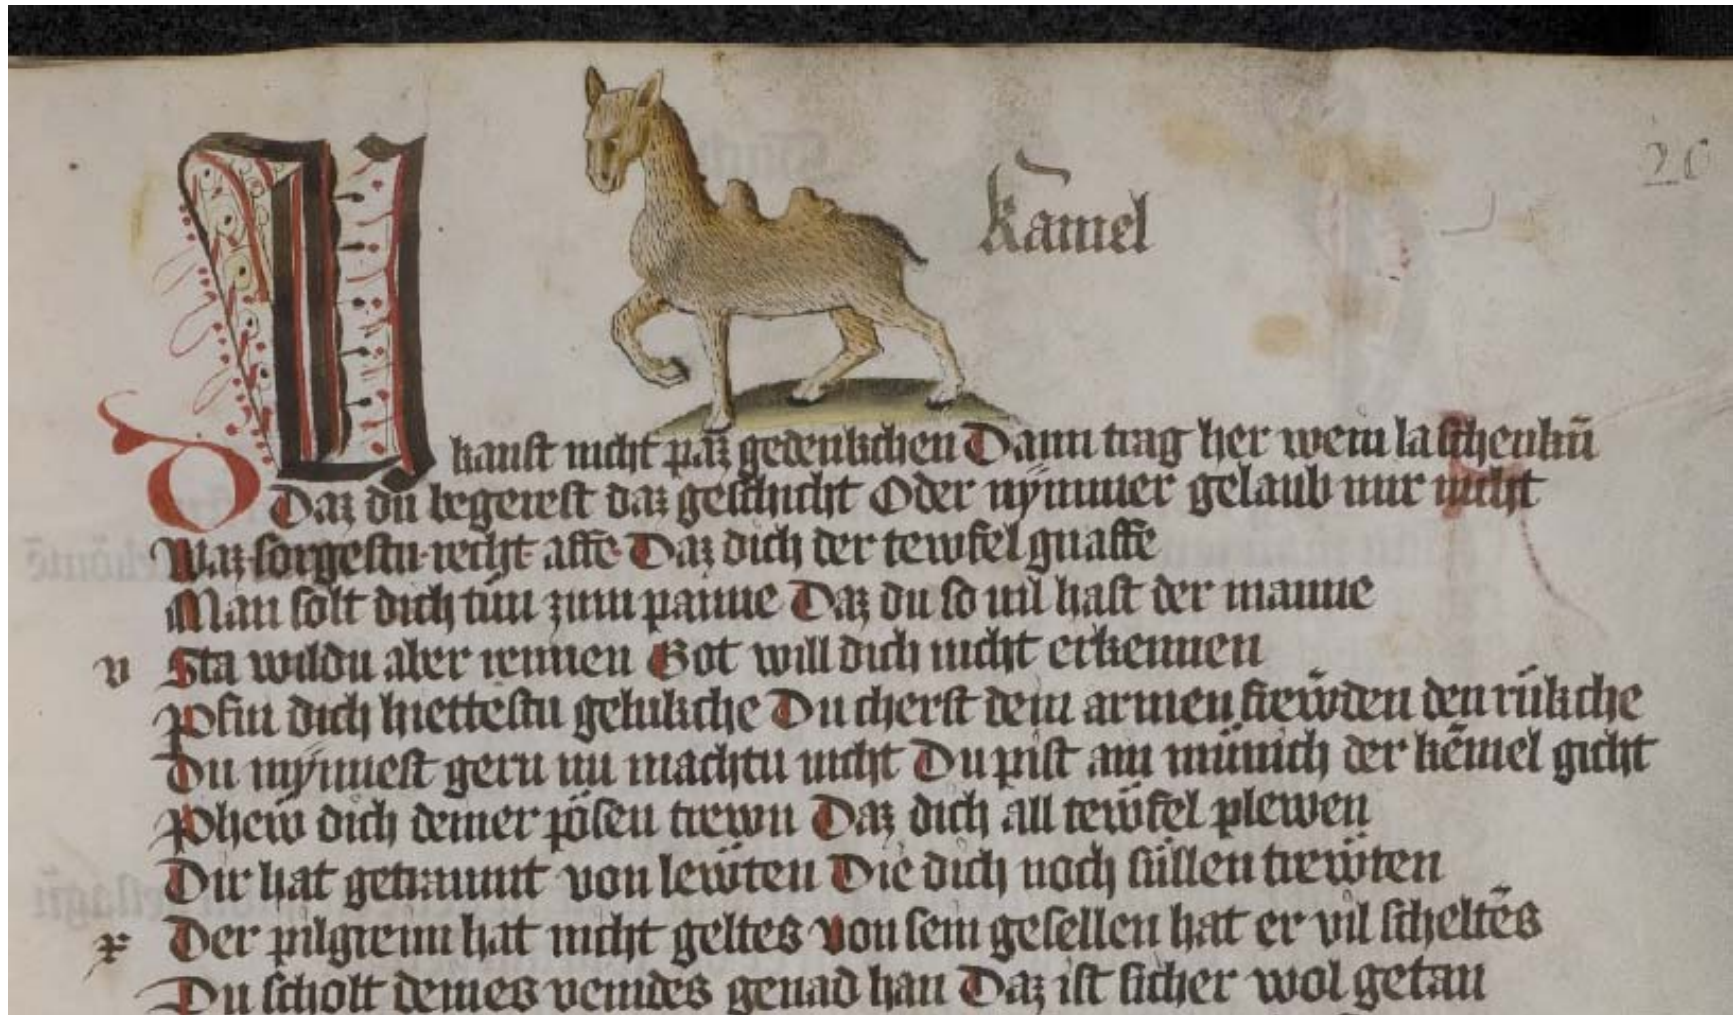 20
kamel
DU kanst nicht paz gedenkchen Dann trag her wein la schenkñ
Daz du begerest daz geschicht Oder nymmer gelaub mir nicht
Waz sorgestu recht affe Daz dich der tewfel gnaffe
Man solt dich tün zum panne Daz du so vil hast der manne
v Sta wildu aber rennen Got will dich nicht erkennen
Phui dich hiettestu gelukche Du cherst dem armen frewden den rükche
Du mynnest gern nu machtu nicht Du pist ain münich der kemel gicht
Phew dich deiner pösen trewn Daz dich all tewfel plewen
Dir hat getraumt von lewten Die dich noch süllen trewten
x Der pilgreim hat nicht geltes von sein gesellen hat er vil scheltēs
Du scholt deines veindes genad han Daz ist sicher wol getan